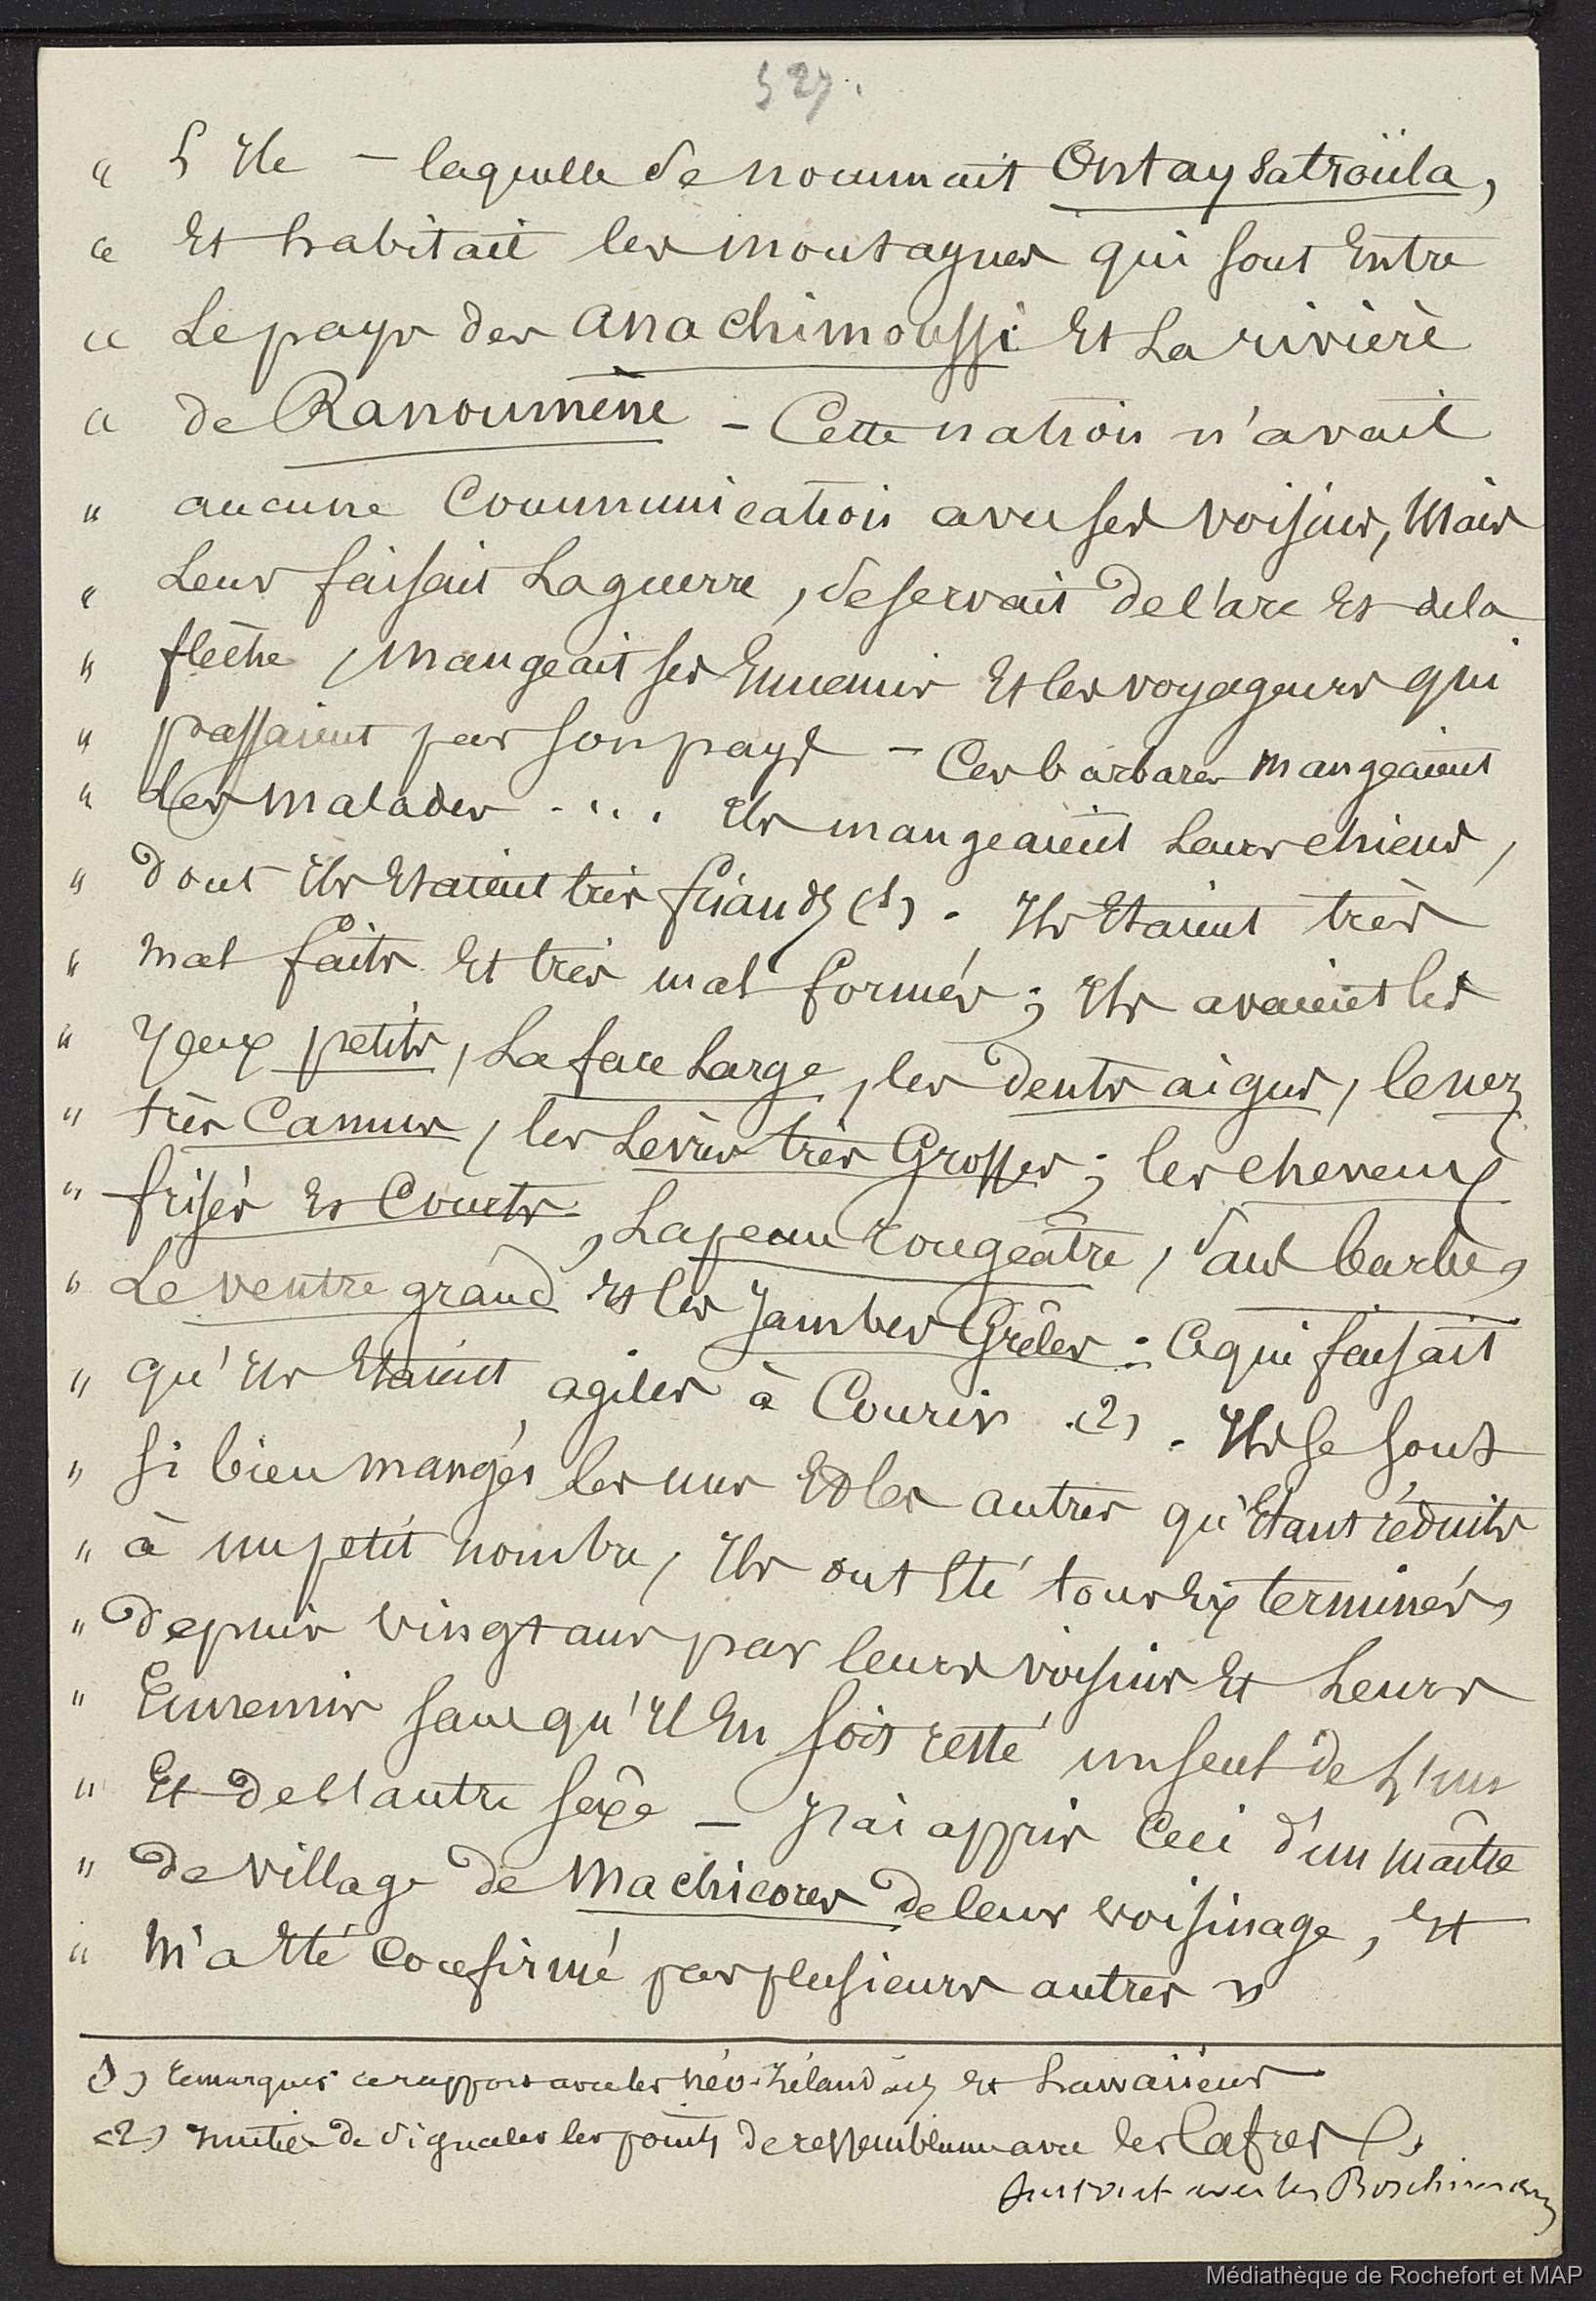 527.
" l'Ile — laquelle se nommait Ontaysatroüla,
" Et habitait les montagnes qui sont Entre
" Le pays des Anachimoussi Et La rivière
" de Ranoumène — Cette nation n'avait
" aucune Communication avec ses voisins, Mais
" Leur faisait La guerre, se servait de l'arc Et de la
" flèche, Mangeait ses Ennemis Et les voyageurs qui
" passaient par son pays — Ces barbares mangeaient
" Les malades .... Ils mangeaient Leurs chiens,
" dont Ils Etaient très friands (1). Ils Etaient très
" mal faits Et très mal formés; Ils avaient les
" Yeux petits, La face Large, les dents aigues, le nez
" très Camus, les Lèvres très Grosses; les cheveux
" frisés Et Courts, La peau rougeâtre, sans barbe,
" Le ventre grand Et les Jambes Grêles: Ce qui faisait
" qu'Ils Etaient agiles à Courir (2). Ils se sont
" si bien mangés les uns Et les autres qu'Etant réduits
" à un petit nombre, Ils ont Eté tous Exterminés,
" depuis vingt ans par leurs voisins Et Leurs
" Ennemis sans qu'Il En soit resté un seul de L'un
" Et de l'autre sexe — J'ai appris Ceci d'un maître
" de village de Machicores de leur voisinage, Et
" M'a Eté Confirmé par plusieurs autres »
(1) remarquer ce rapport avec les Néo-Zélandais Et Hawaïiens
(2) Inutile de signaler les points de ressemblance avec les Cafres &
surtout avec les Boschimans
Médiathèque de Rochefort et MAP